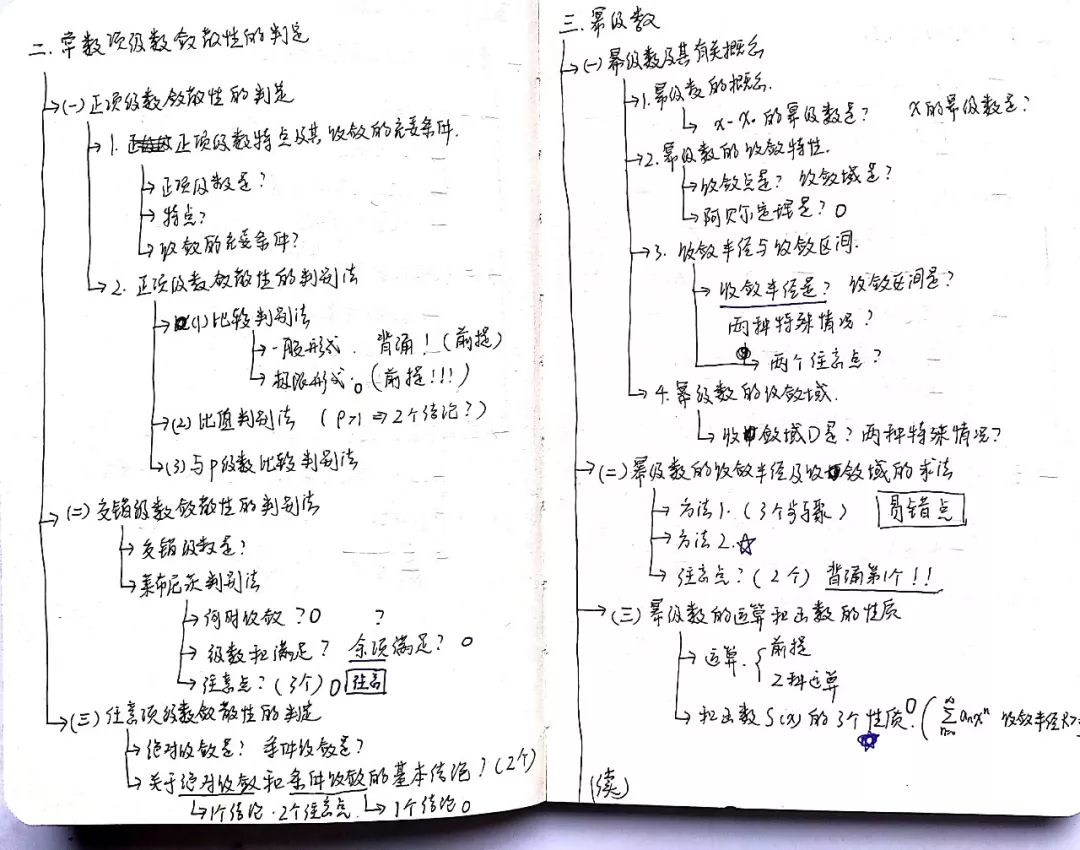 二.常数项级数敛散性的判定
(一)正项级数敛散性的判定
1.正项级数特点及其收敛的充要条件.
正项级数是?
特点?
收敛的充要条件?
2.正项级数敛散性的判别法
(1)比较判别法
一般形式. 背诵!(前提)
极限形式.。(前提!!!)
(2)比值判别法 (ρ>1 ⇒2个结论?)
(3)与P级数比较判别法
(二)交错级数敛散性的判别法
交错级数是?
莱布尼茨判别法
何时收敛?O ?
级数和满足? 余项满足? O
注意点?(3个) O 注意
(三)任意项级数敛散性的判定
绝对收敛是? 条件收敛是?
关于绝对收敛和条件收敛的基本结论?(2个)
1个结论.2个注意点. 1个结论O
三.幂级数
(一)幂级数及其有关概念
1.幂级数的概念.
x-x₀的幂级数是? x的幂级数是?
2.幂级数的收敛特性.
收敛点是? 收敛域是?
阿贝尔定理是? O
3.收敛半径与收敛区间.
收敛半径是? 收敛区间是?
两种特殊情况?
两个注意点?
4.幂级数的收敛域.
收敛域D是?两种特殊情况?
(二)幂级数的收敛半径及收敛域的求法
方法1.(3个步骤) 易错点
方法2.☆
注意点?(2个) 背诵第1个!!
(三)幂级数的运算和函数的性质
运算.{前提
2种运算
和函数S(x)的3个性质O.(∑aₙxⁿ 收敛半径R>
(续)